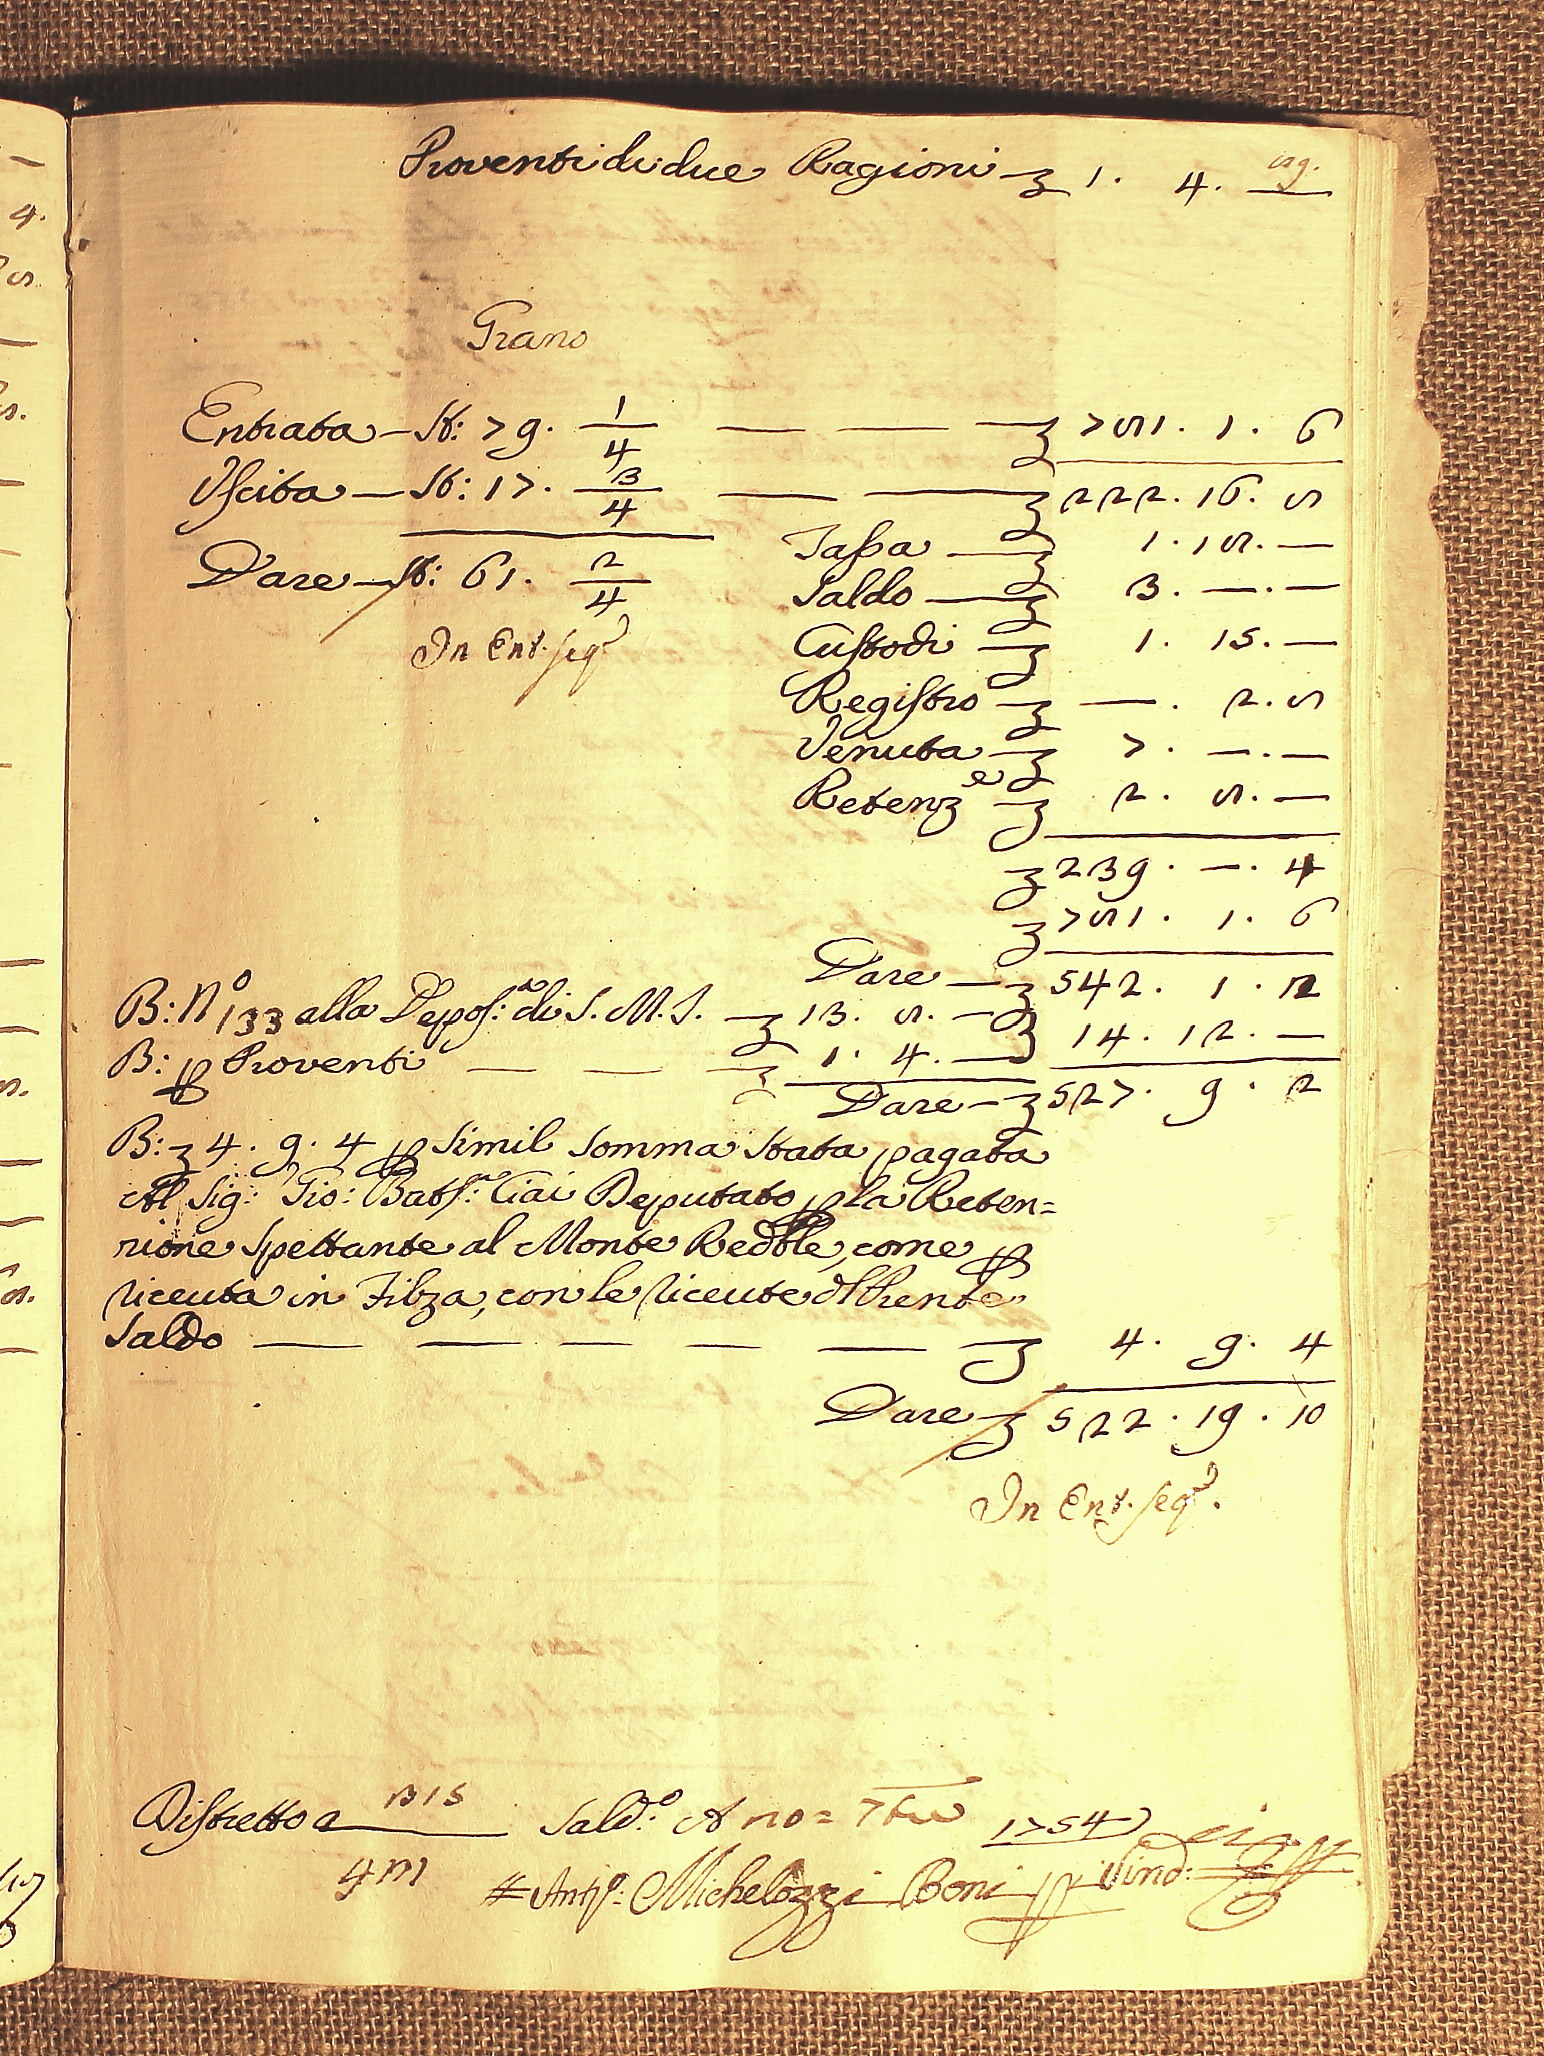 129.
Proventi di due Ragioni — 1. 4. —
Grano
Entrata — St: 79. 1/4 — — — 751. 1. 6
Uscita — St: 17. 3/4 — — 222. 16. 5
Tassa — 1. 15. —
Dare — St: 61. 2/4
Saldo — 3. —. —
In Ent. seg.
Custodi — 1. 15. —
Registro — —. 2. 5
Venuta — 7. —. —
Retenz.e — 2. 5. —
239. —. 4
751. 1. 6
Dare — 542. 1. 2
B: N.o 133 alla Depos: di S. M. I. — 13. 8. — 14. 12. —
B: p Proventi — — — 1. 4. —
Dare — 527. 9. 2
B: 4. 9. 4 p simil somma stata pagata
Al Sig: Gio: Batt: Ciai Deputato p la Reten=
zione spettante al Monte Redble, come p
ricevuta in Filza, con le ricevute
Saldo — — — — — 4. 9. 4
Dare — 522. 19. 10
In Ent. seg.
Distretto a 315 Sald.o A no= 1754
4m
Ant.o: Michelozzi Boni Sind: